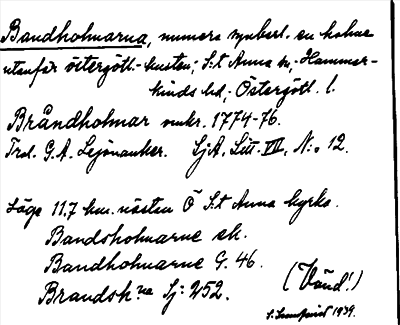 Bandholmarna, numera synberl. en holme
utanför östergötl.-kusten; S:t Anna sn, Hammar-
kinds hd, Östergötl. l.
Brändholmar mkr. 1774-76.
Trol. G. A. Lejonanker. SjA, Litt. VII, N:o 12.
Läge 11,7 km. nästan Ö S:t Anna kyrka.
Bandsholmarne ek.
Bandholmarne G. 46.
Brandsh:ne Sj: 252.
(Vänd!)
1939.